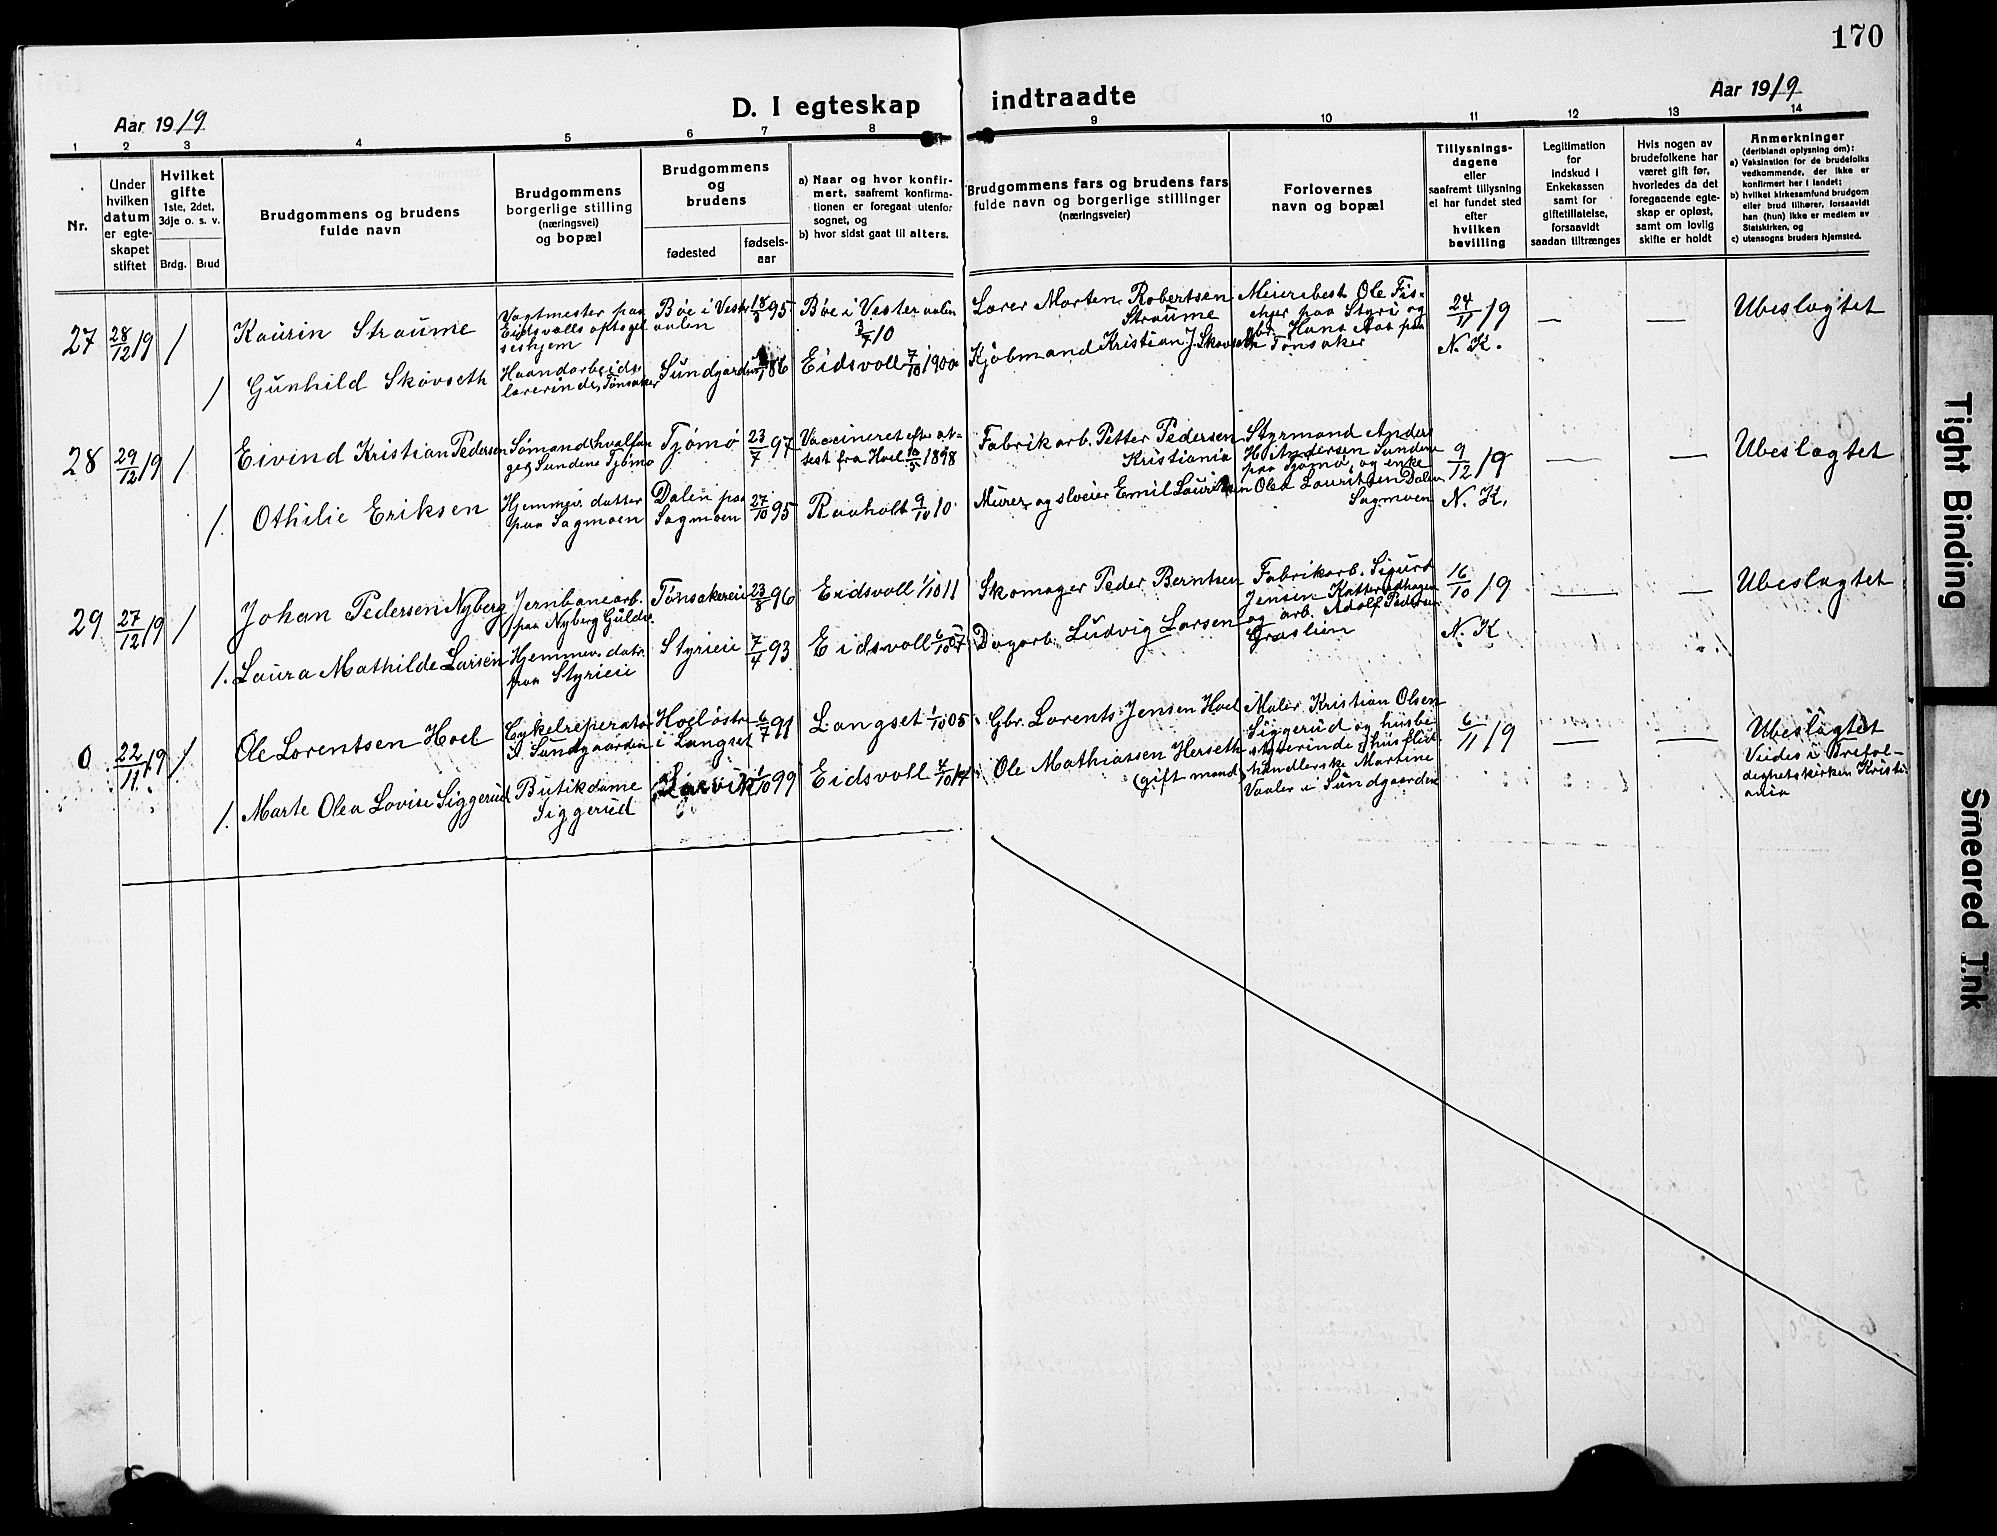 170
D. I egteskap indtraadte
Aar 1919
Aar 1919
1 2 3 4 5 6 7 8 9 10 11 12 13 14
Nr.
Under hvilken datum er egteskapet stiftet
Hvilket gifte
1ste, 2det, 3dje o. s. v.
Brdg. Brud
Brudgommens og brudens fulde navn
Brudgommens borgerlige stilling (næringsvei) og bopæl
Brudgommens og brudens
fødested
fødsels-aar
a) Naar og hvor konfir-
mert, saafremt konfirma-
tionen er foregaat utenfor
sognet, og
b) hvor sidst gaat til alters.
Brudgommens fars og brudens fars
fulde navn og borgerlige stillinger
(næringsveier)
Forlovernes
navn og bopæl
Tillysnings-
dagene
eller
saafremt tillysning
ei har fundet sted
efter
hvilken
bevilling
Legitimation
for
indskud i
Enkekassen
samt for
giftetillatelse,
forsaavidt
saadan tiltrænges
Hvis nogen av
brudefolkene har
været gift før,
hvorledes da det
foregaaende egte-
skap er opløst,
samt om lovlig
skifte er holdt
Anmerkninger
(deriblandt oplysning om):
a) Vaksination for de brudefolks
vedkommende, der ikke er
konfirmert her i landet;
b) hvilket kirkesamfund brudgom
eller brud tilhører, forsaavidt
han (hun) ikke er medlem av
Statskirken, og
c) utensogns bruders hjemsted.
27 28/12 19 1
Kaurin Straume
Vagtmester paa
Eidsvolls optagel
seshjem
Bøe i Vester
aalen
18/3 95
Bøe i Vesteraalen
3/7 10
Lærer Morten Robertsen
Straume
Meieribest. Ole Fis-
cher paa Styri og
gbr. Hans Aas paa
Tønsaker
24/11 19
N. K.
— —
Ubeslægtet
1 Gunhild Skovseth
Haandarbeids
lærerinde, Tønsaker
Sundgarden
86
Eidsvoll 7/10 1900
Kjøbmand Kristian J. Skovseth
28 29/12 19 1
Eivind Kristian Pedersen
Sømand (hvalfan
ger) Sundene Tjømø
Tjømø
23/7 97
Vaccineret efter at-
test fra Hoel 10/5 1898
Fabrikarb. Petter Pedersen
Kristiania
Styrmand Anders
H. Andersen Sundene
paa Tjømø, og enke
Olea Lauritsen Dalen
Sagmoen
9/12 19
N. K.
— —
Ubeslægtet
1. Othilie Eriksen
Hjemmev. datter
paa Sagmoen
Dalen paa
Sagmoen
27/10 95
Raaholt 9/10 10
Murer og slveier Emil Lauritsen
29 27/12 19 1
Johan Pedersen Nyberg
Jernbanearb.
paa Nyberg Guldv.
Tønsakereie
23/8 96
Eidsvoll 1/10 11
Skomager Peder Berntsen
Fabrikarb. Sigurd
Jensen Katterudhagen
og arb. Adolf Pedersen
Graslien
16/10 19
N. K
— —
Ubeslægtet
1. Laura Mathilde Larsen
Hjemmev. datr
paa Styrieie
Styrieie
7/4 93
Eidsvoll 6/10 07
Dagarb. Ludvig Larsen
0 22/11 19 1
Ole Lorentsen Hoel
Cykelreperatør
i Sundgaarden
Hoel østre
i Langset
6/7 91
Langset 1/10 05
Gbr. Lorents Jensen Hoel
Maler Kristian Olsen
Siggerud og husbe-
styrerinde, husflid-
handlerske Martine
Vaaler i Sundgaarden
6/11 19
— —
Ubeslægtet
Viedes i Trefol-
dighetskirken Kristi
ania
1. Marte Olea Lovise Siggerud
Butikdame
Siggerud
Larvik
1/10 99
Eidsvoll 4/10 14
Ole Mathiassen Herseth
(gift mand)
Tight Binding
Smeared Ink